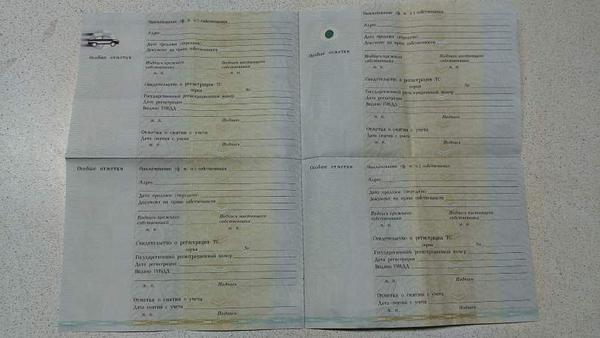 Особые отметки
Наименование (ф. и. о.) собственника
Адрес
Дата продажи (передачи)
Документ на право собственности
Подпись прежнего собственника
Подпись настоящего собственника
м. п.
м. п.
Свидетельство о регистрации ТС
серия №
Государственный регистрационный номер
Дата регистрации
Выдано ГИБДД
м. п.
Подпись
Отметка о снятии с учета
Дата снятия с учета
м. п.
Подпись
Особые отметки
Наименование (ф. и. о.) собственника
Адрес
Дата продажи (передачи)
Документ на право собственности
Подпись прежнего собственника
Подпись настоящего собственника
м. п.
м. п.
Свидетельство о регистрации ТС
серия №
Государственный регистрационный номер
Дата регистрации
Выдано ГИБДД
м. п.
Подпись
Отметка о снятии с учета
Дата снятия с учета
м. п.
Подпись
Особые отметки
Наименование (ф. и. о.) собственника
Адрес
Дата продажи (передачи)
Документ на право собственности
Подпись прежнего собственника
Подпись настоящего собственника
м. п.
м. п.
Свидетельство о регистрации ТС
серия №
Государственный регистрационный номер
Дата регистрации
Выдано ГИБДД
м. п.
Подпись
Отметка о снятии с учета
Дата снятия с учета
м. п.
Подпись
Особые отметки
Наименование (ф. и. о.) собственника
Адрес
Дата продажи (передачи)
Документ на право собственности
Подпись прежнего собственника
Подпись настоящего собственника
м. п.
м. п.
Свидетельство о регистрации ТС
серия №
Государственный регистрационный номер
Дата регистрации
Выдано ГИБДД
м. п.
Подпись
Отметка о снятии с учета
Дата снятия с учета
м. п.
Подпись